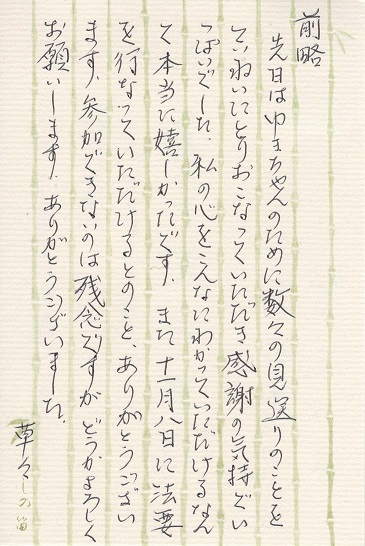 前略
先日はゆきちゃんのために数々の見送りのことを
ていねいにとりおこなっていただき感謝の気持でい
っぱいでした。私の心をこんなにわかっていただけるなん
て本当に嬉しかったです。また十一月八日に法要
を行なっていただけるとのこと、ありがとうござい
ます。参加できないのは残念ですがどうかよろしく
お願いします。ありがとうございました。
草々